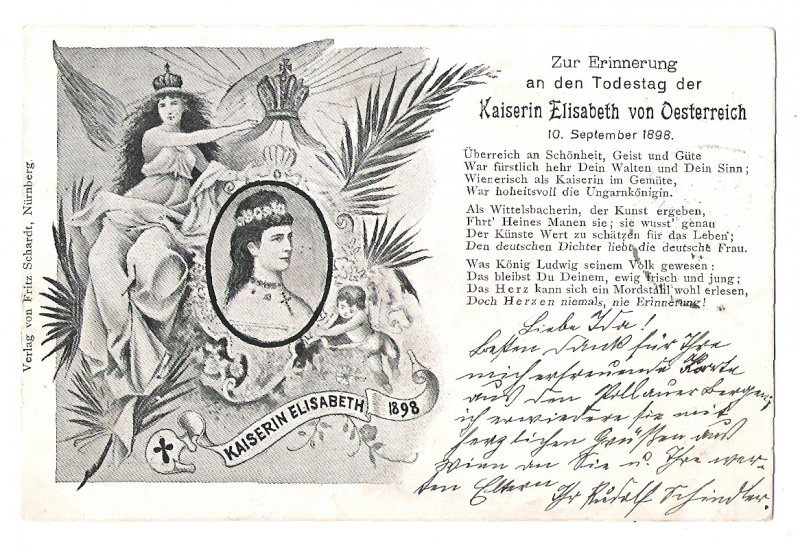 Zur Erinnerung
an den Todestag der
Kaiserin Elisabeth von Oesterreich
10. September 1898.
Überreich an Schönheit, Geist und Güte
War fürstlich hehr Dein Walten und Dein Sinn;
Wienerisch als Kaiserin im Gemüte,
War hoheitsvoll die Ungarnkönigin.
Als Wittelsbacherin, der Kunst ergeben,
Ehrt' Heines Manen sie; sie wusst' genau
Der Künste Wert zu schätzen für das Leben;
Den deutschen Dichter liebt die deutsche Frau.
Was König Ludwig seinem Volk gewesen:
Das bleibst Du Deinem, ewig frisch und jung;
Das Herz kann sich ein Mordstahl wohl erlesen,
Doch Herzen niemals, nie Erinnerung!
Liebe Ida!
Besten Dank für Ihre
mich erfreuende Karte
aus den Pollauer Bergen;
ich erwiedere sie mit
herzlichen Grüßen aus
Wien an Sie u. Ihre wer-
ten Eltern Ihr Rudolf Schindler.
KAISERIN ELISABETH 1898
Verlag von Fritz Schardt, Nürnberg.